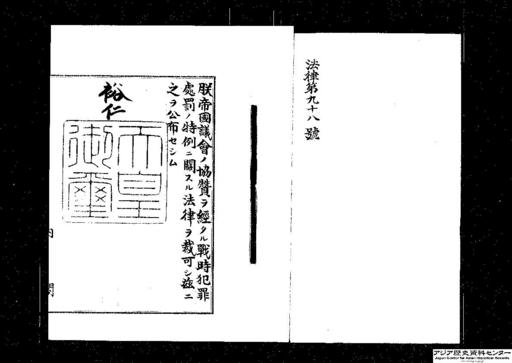 法律第九十八號
朕帝國議會ノ協贊ヲ經タル戰時犯罪
處罰ノ特例ニ關スル法律ヲ裁可シ茲ニ
之ヲ公布セシム
裕仁
天皇御璽
内閣
アジア歴史資料センター
Japan Center for Asian Historical Records